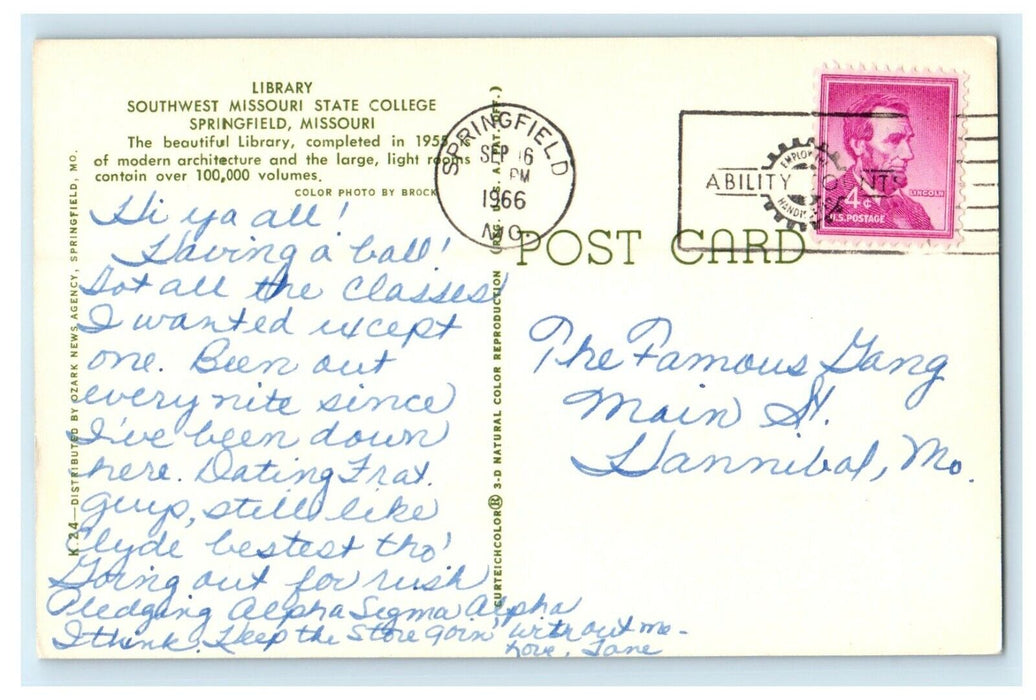 LIBRARY
SOUTHWEST MISSOURI STATE COLLEGE
SPRINGFIELD, MISSOURI
The beautiful Library, completed in 1955, is
of modern architecture and the large, light rooms
contain over 100,000 volumes.
COLOR PHOTO BY BROCK
Hi ya all!
Having a ball!
Got all the classes
I wanted except
one. Been out
every nite since
I've been down
here. Dating Frat.
guys, still like
Clyde bestest tho'
Going out for rush
Pledging Alpha Sigma Alpha
I think. Keep the store goin' without me-
Love, Jane
K.24—DISTRIBUTED BY OZARK NEWS AGENCY, SPRINGFIELD, MO.
CURTEICHCOLOR® 3-D NATURAL COLOR REPRODUCTION (REG. U.S.A. PAT. OFF.)
SPRINGFIELD
SEP 16
PM
1966
MO.
ABILITY COUNTS
EMPLOY THE
HANDICAPPED
LINCOLN
4¢
U.S. POSTAGE
POST CARD
The Famous Gang
Main St.
Hannibal, Mo.